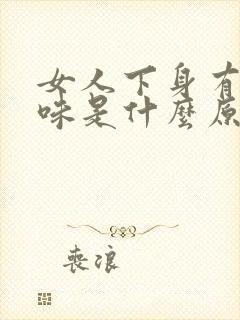 女人下身有
味是什麼原
喪浪